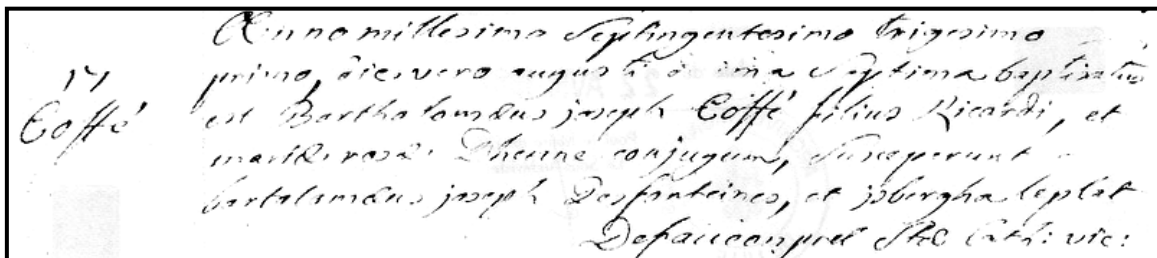 Anno millesimo Septingentesimo trigesimo
primo, die vero augusti decima Septima baptisatus
17
Coffé
est Bartholomæus joseph Coffé filius Ricardi, et
mariæ rosæ Dhenne conjugum, Susceperunt
bartolomæus joseph Desfonteines, et jsbergha leplat
Defauconpret Stæ Cath: vic: